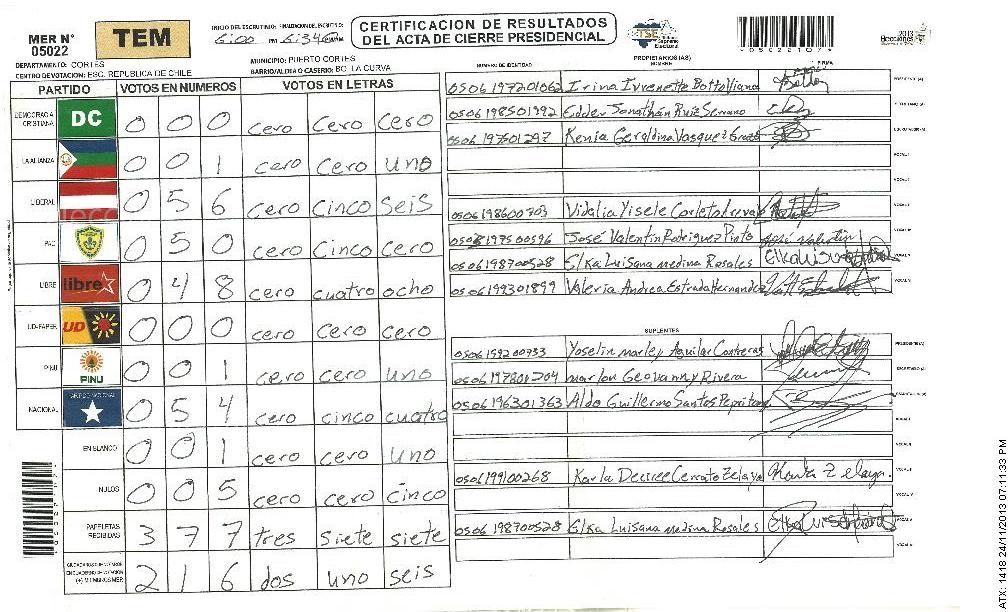 MER N° 05022
TEM
INICIO DEL ESCRUTINIO: 6:00 PM
FINALIZACION DEL ESCRUTINIO: 6:34
CERTIFICACION DE RESULTADOS
DEL ACTA DE CIERRE PRESIDENCIAL
TSE Tribunal Supremo Electoral
050221071
2013
Elecciones
DEPARTAMENTO: CORTES
MUNICIPIO: PUERTO CORTES
CENTRO DE VOTACION: ESC. REPUBLICA DE CHILE
BARRIO/ALDIA O CASERIO: BO. LA CURVA
PARTIDO VOTOS EN NUMEROS VOTOS EN LETRAS
DEMOCRACIA CRISTIANA DC 0 0 0 cero cero cero
LA ALIANZA 0 0 1 cero cero uno
LIBERAL 0 5 6 cero cinco seis
PAC 0 5 0 cero cinco cero
LIBRE libre 0 4 8 cero cuatro ocho
UD-FAPER UD 0 0 0 cero cero cero
PINU PINU 0 0 1 cero cero uno
NACIONAL 0 5 4 cero cinco cuatro
EN BLANCO 0 0 1 cero cero uno
NULOS 0 0 5 cero cero cinco
PAPELETAS RECIBIDAS 3 7 7 tres siete siete
(+) MIEMBROS MER 2 1 6 dos uno seis
NUMERO DE IDENTIDAD PROPIETARIOS (AS) NOMBRE FIRMA
0506197201062 Irina Ivvenette PRESIDENTE (A)
0506198501392 Edder Jonathan Ruiz Serrano SECRETARIO (A)
0506197501297 Kenia Geraldina Vasquez ESCRUTADOR (A)
VOCAL I
VOCAL II
0506198600703 Vidalia Yisele
José Valentin Rodriguez Pinto
0506198700528 Elka Luisana medina Rosales
0506199301899 Valeria Andrea Estrada Hernandez
SUPLENTES
0506199200733 Yoselin marley Aguilar Contreras PRESIDENTE (A)
0506197801204 marlon Geovanny Rivera SECRETARIO (A)
0506196301363 Aldo Guillermo Santos ESCRUTADOR (A)
0506199100268 Karla Cerrato Zelaya Karla Zelaya.
0506198700528 Elka Luisana medina Rosales
ATX: 1418 24/11/2013 07:11:33 PM